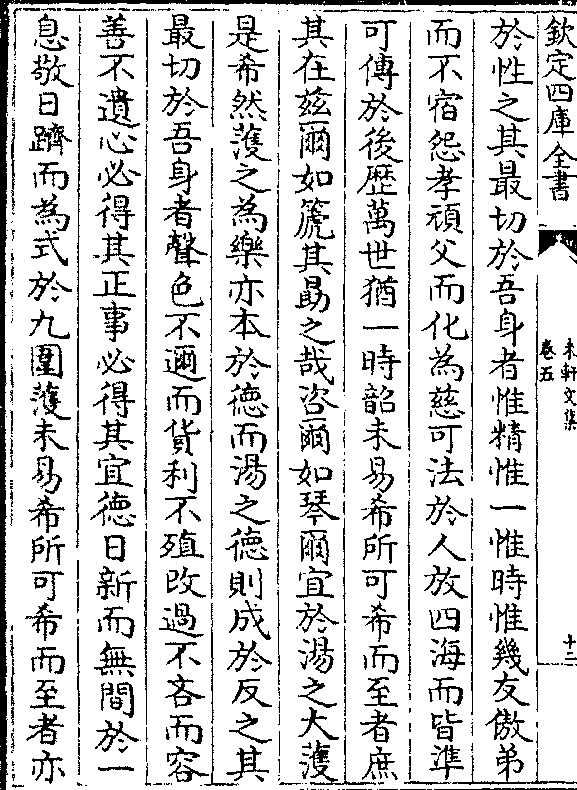 欽定四庫全書
未軒文集
卷五
十二
於性之其最切於吾身者惟精惟一惟時惟幾友傲弟
而不宿怨孝頑父而化為慈可法於人放四海而皆準
可傳於後歴萬世猶一時韶未易希所可希而至者庶
其在兹爾如篪其勗之哉咨爾如琴爾宜於湯之大濩
是希然濩之為樂亦本於徳而湯之徳則成於反之其
最切於吾身者聲色不邇而貨利不殖改過不吝而容
善不遺心必得其正事必得其宜徳日新而無間於一
息敬日躋而為式於九圍濩未易希所可希而至者亦